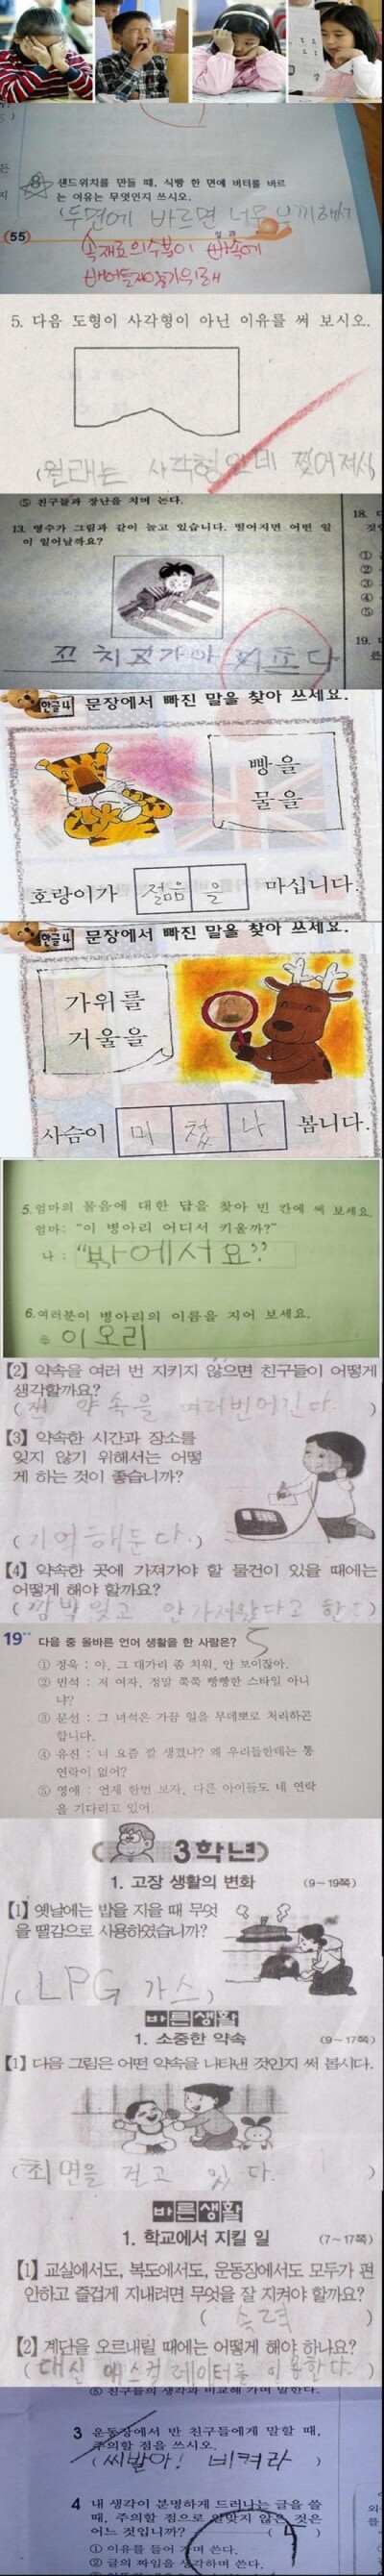 8 샌드위치를 만들 때, 식빵 한 면에 버터를 바르
는 이유는 무엇인지 쓰시오.
(두면에 바르면 너무 느끼해서
55
실과
속재료의수분이 빵속에
배어들지않게하기위해
5. 다음 도형이 사각형이 아닌 이유를 써 보시오.
(원래는 사각형인데 찢어져서)
⑤ 친구들과 장난을 치며 논다.
13. 영수가 그림과 같이 놀고 있습니다. 떨어지면 어떤 일
이 일어날까요?
18.
①
②
③
④
⑤
19.
한글 4 문장에서 빠진 말을 찾아 쓰세요.
빵을
물을
호랑이가 젊음을 마십니다.
한글 4 문장에서 빠진 말을 찾아 쓰세요.
가위를
거울을
사슴이 미쳤나 봅니다.
5. 엄마의 물음에 대한 답을 찾아 빈 칸에 써 보세요.
엄마: "이 병아리 어디서 키울까?"
나 : "밖에서요"
6. 여러분이 병아리의 이름을 지어 보세요.
이오리
【2】 약속을 여러 번 지키지 않으면 친구들이 어떻게
생각할까요?
(쟨 약속을 여러번어긴다. )
【3】 약속한 시간과 장소를
잊지 않기 위해서는 어떻
게 하는 것이 좋습니까?
(기억해둔다.)
【4】 약속한 곳에 가져가야 할 물건이 있을 때에는
어떻게 해야 할까요?
(깜박 잊고 안가져왔다고 한다)
19 다음 중 올바른 언어 생활을 한 사람은? 5
① 정욱 : 야, 그 대가리 좀 치워, 안 보이잖아.
② 민석 : 저 여자, 정말 쭉쭉 빵빵한 스타일 아니
냐?
③ 문선 : 그 녀석은 가끔 일을 무데뽀로 처리하곤
합니다.
④ 유진 : 너 요즘 깔 생겼냐? 왜 우리들한테는 통
연락이 없어?
⑤ 영애 : 언제 한번 보자, 다른 아이들도 네 연락
을 기다리고 있어.
3학년
1. 고장 생활의 변화 (9~19쪽)
【1】 옛날에는 밥을 지을 때 무엇
을 땔감으로 사용하였습니까?
(LPG 가스)
바른생활
1. 소중한 약속 (9~17쪽)
【1】 다음 그림은 어떤 약속을 나타낸 것인지 써 봅시다.
(최면을 걸고 있다. )
바른생활
1. 학교에서 지킬 일 (7~17쪽)
【1】 교실에서도, 복도에서도, 운동장에서도 모두가 편
안하고 즐겁게 지내려면 무엇을 잘 지켜야 할까요?
( 속력 )
【2】 계단을 오르내릴 때에는 어떻게 해야 하나요?
(대신 에스컬레이터를 이용한다.)
⑤ 친구들의 생각과 비교해 가며 말한다.
3 운동장에서 반 친구들에게 말할 때,
주의할 점을 쓰시오.
(씨발아! 비켜라 )
4 내 생각이 분명하게 드러나는 글을 쓸
때, 주의할 점으로 알맞지 않은 것은
어느 것입니까? ( 4 )
① 이유를 들어 가며 쓴다.
② 글의 짜임을 생각하며 쓴다.